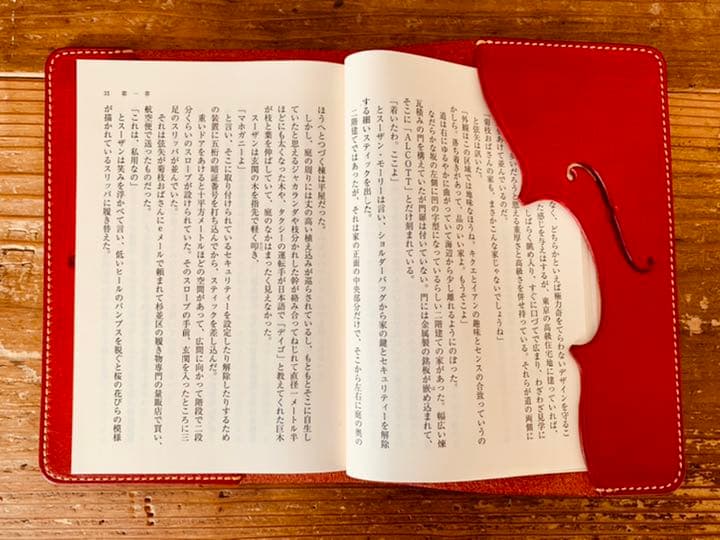 なく、どちらかといえば極力奇をてらわないデザインを守るこ
た感じを与えはするが、東京の高級住宅地に建っていれば、
しばらく眺め入り、すぐに口づてで広まり、わざわざ見学に
いだろうと思える重厚さと高級さを併せ持っている。それらが道の両側に
をあけて並んでいるのだ。
菊枝おばさんの家も、まさかこんな家じゃないでしょうね」
と弦矢は訊いた。
「外観はこの区域では地味なほうね。キクエとイアンの趣味とセンスの合致っていうの
かしら。落ち着きがあって、品のいい家よ。もうそこよ」
道は右にゆるやかに曲がっていて海辺から少し離れるようにのぼった。
なだらかな坂の左側に凹の字型になっているらしい二階建ての家があった。幅広い煉
瓦積みの門を構えていたが門扉は付いていない。門には金属製の銘板が嵌め込まれて、
そこに「ALCOTT」とだけ刻まれている。
「着いたわ。ここよ」
とスーザン・モーリーは言い、ショルダーバッグから家の鍵とセキュリティーを解除
する細いスティックを出した。
二階建てではあったが、それは家の正面の中央部分だけで、そこから左右に庭の奥の
33 第一章
ほうへとつづく棟は平屋だった。
しかし、庭の周りには丈の高い植え込みが巡らされているし、もともとそこに自生し
ていたと思えるジャカランダや枝分かれした幹が絡み合ってねじれて直径一メートル半
ほどにも太くなった木や、タクシーの運転手が日本語で「デイゴ」と教えてくれた巨木
が枝と葉を伸ばしていて、庭のなかはまったく見えなかった。
スーザンは玄関の木を指先で軽く叩き、
「マホガニーよ」
と言い、そこに取り付けられているセキュリティーを設定したり解除したりするため
の装置に五桁の暗証番号を打ち込んでから、スティックを差し込んだ。
重いドアをあけると十平方メートルほどの空間があって、広間に向かって階段で二段
分くらいのスロープが設けられていた。そのスロープの手前、玄関を入ったところに三
足のスリッパが並んでいた。
それは弦矢が菊枝おばさんにeメールで頼まれて杉並区の履き物専門の量販店で買い、
航空便で送ったものだった。
「これは、私用なの」
とスーザンは笑みを浮かべて言い、低いヒールのパンプスを脱ぐと桜の花びらの模様
が描かれているスリッパに履き替えた。